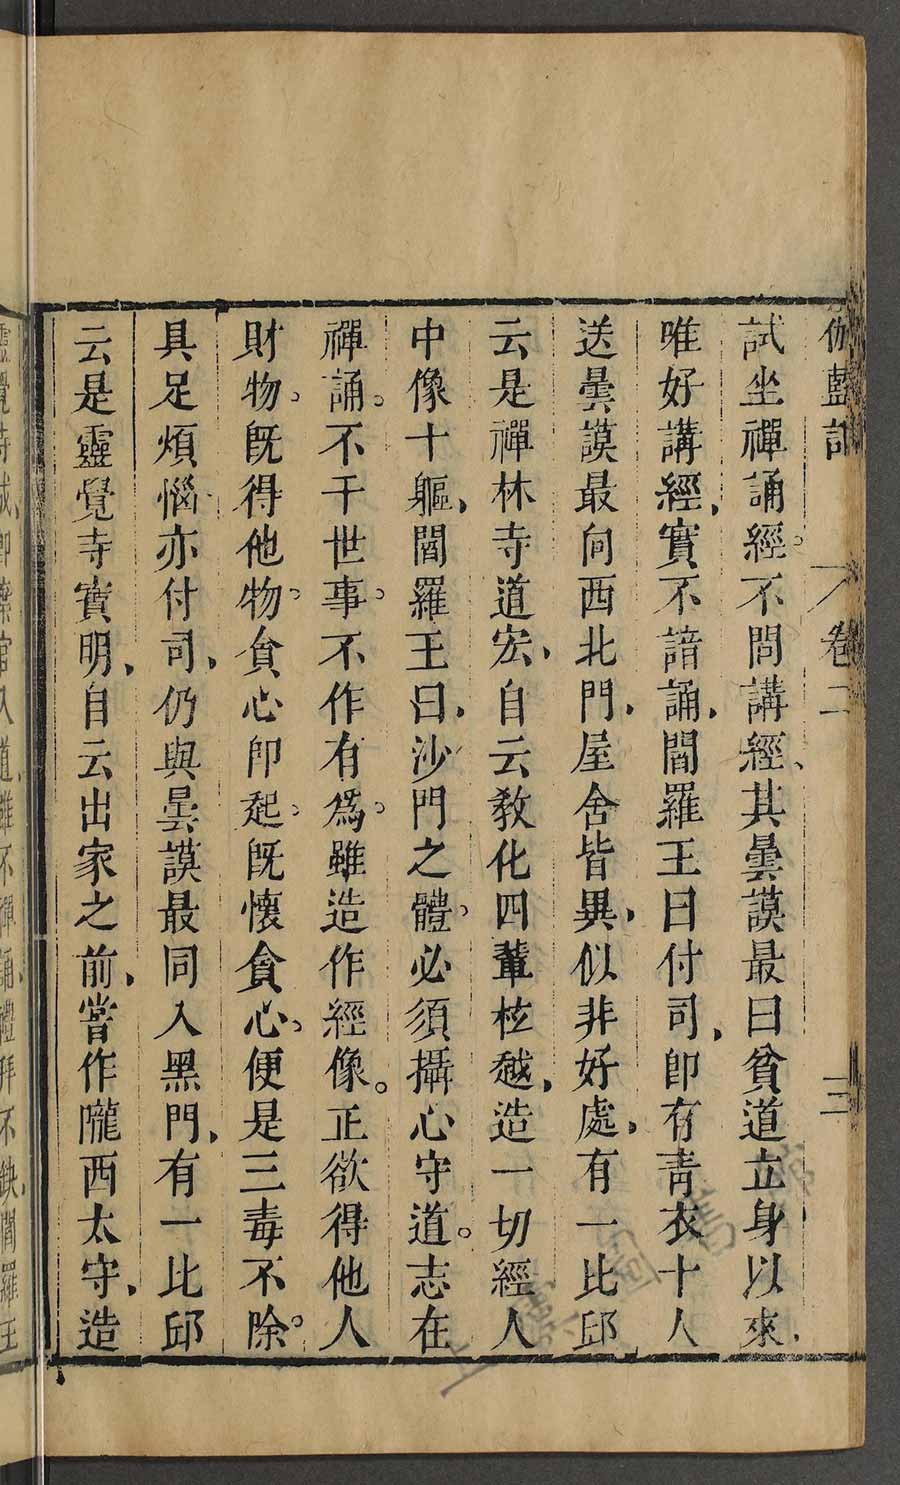 伽藍記 卷二 三
試坐禪誦經。不問講經、其曇謨最曰貧道立身以來、
唯好講經、實不諳誦、閻羅王曰付司、卽有靑衣十人
送曇謨最向西北門、屋舍皆異、似非好處、有一比邱
云是禪林寺道宏、自云敎化四輩檀越、造一切經人
中像十軀、閻羅王曰、沙門之體、必須攝心守道。志在
禪誦。不干世事。不作有爲。雖造作經像。正欲得他人
財物。旣得他物。貪心卽起。旣懷貪心。便是三毒不除。
具足煩惱亦付司、仍與曇謨最同入黑門、有一比邱
云是靈覺寺寶明、自云出家之前、嘗作隴西太守、造